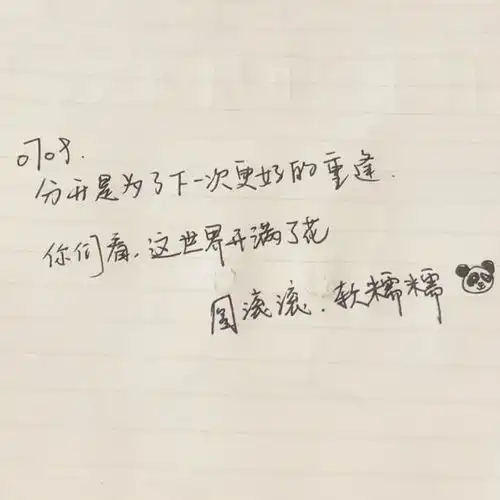 0709.
分开是为了下一次更好的重逢.
你们看,这世界开满了花
圆滚滚.软糯糯